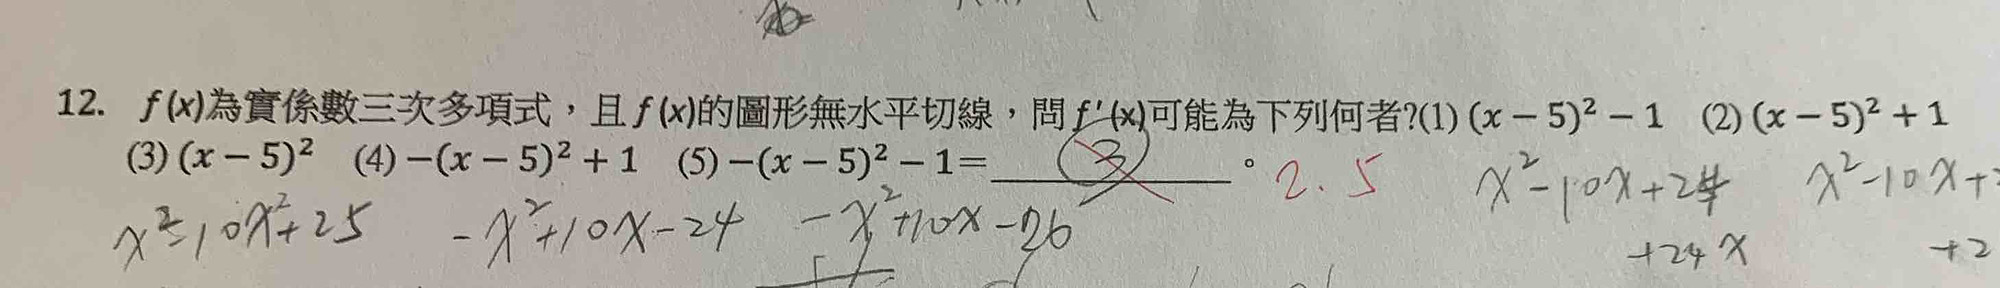 12. f(x)為實係數三次多項式，且f(x)的圖形無水平切線，問f′(x)可能為下列何者?(1) (x − 5)² − 1 (2) (x − 5)² + 1
(3) (x − 5)² (4) −(x − 5)² + 1 (5) −(x − 5)² − 1= ③ 。 2.5
x²-10x+24 x²-10x+
x²-10x²+25 -x²+10x-24 -x²+10x-26
+24x +2